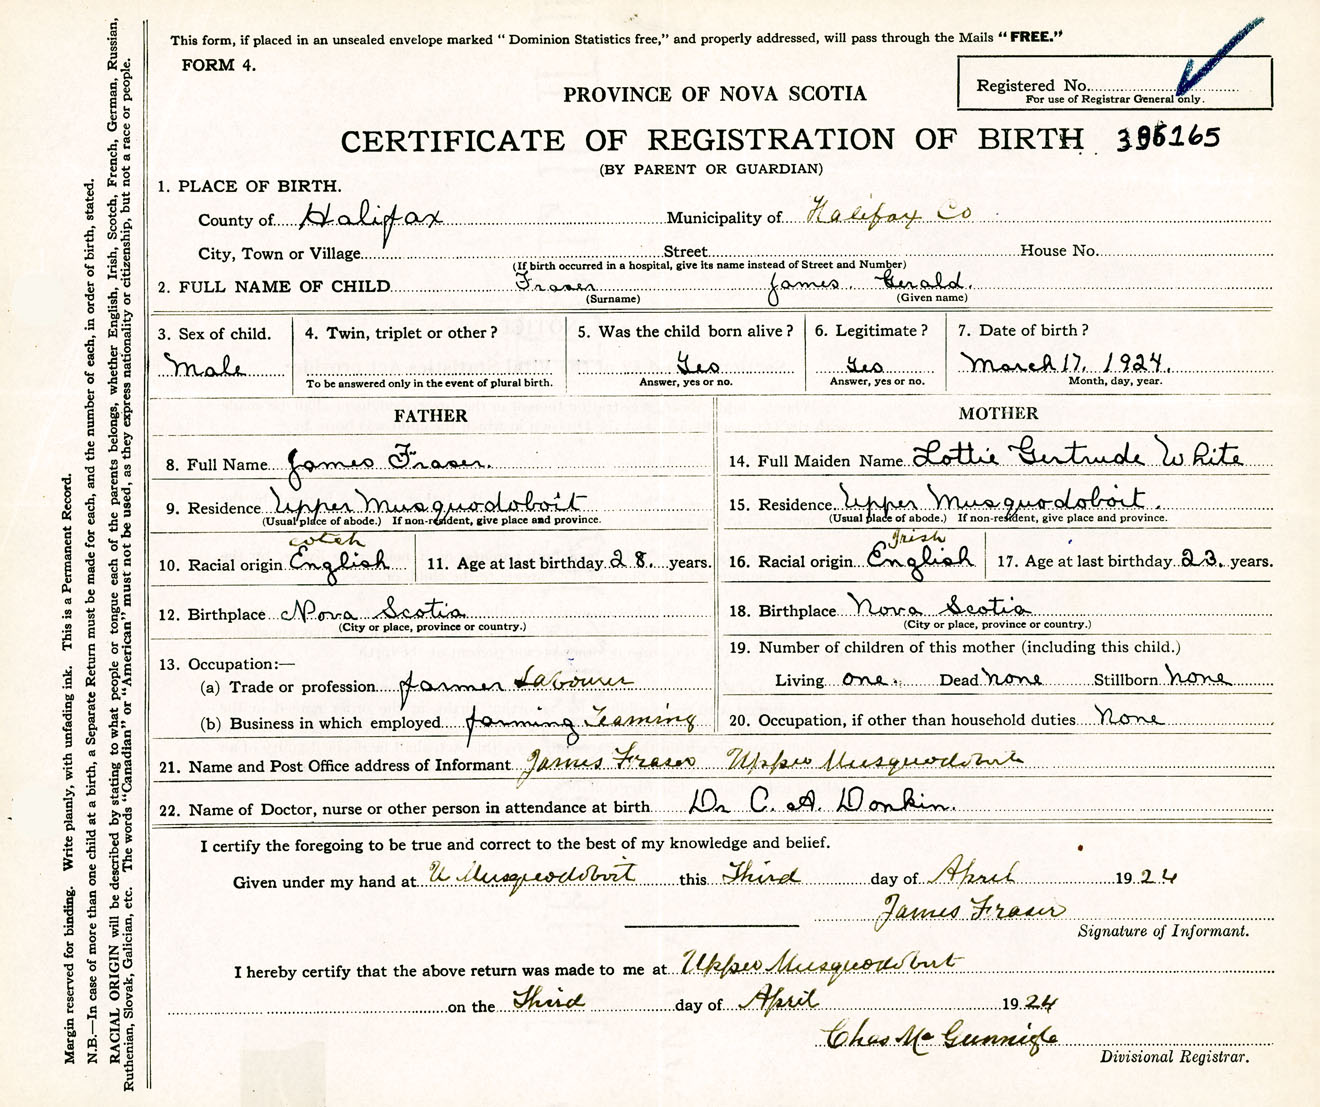 This form, if placed in an unsealed envelope marked “ Dominion Statistics free,” and properly addressed, will pass through the Mails “ FREE.”
FORM 4.
Registered No.
For use of Registrar General only.
PROVINCE OF NOVA SCOTIA
CERTIFICATE OF REGISTRATION OF BIRTH
(BY PARENT OR GUARDIAN)
1. PLACE OF BIRTH.
County of Halifax Municipality of Halifax Co
City, Town or Village Street House No.
(If birth occurred in a hospital, give its name instead of Street and Number)
2. FULL NAME OF CHILD Fraser James Gerald.
(Surname) (Given name)
3. Sex of child. 4. Twin, triplet or other ? 5. Was the child born alive ? 6. Legitimate ? 7. Date of birth ?
Male Yes Yes March 17, 1924.
To be answered only in the event of plural birth. Answer, yes or no. Answer, yes or no. Month, day, year.
FATHER MOTHER
8. Full Name James Fraser. 14. Full Maiden Name Lottie Gertrude White
9. Residence Upper Musquodoboit 15. Residence Upper Musquodoboit.
(Usual place of abode.) If non-resident, give place and province. (Usual place of abode.) If non-resident, give place and province.
Irish
10. Racial origin English 11. Age at last birthday 28. years. 16. Racial origin English 17. Age at last birthday 23. years.
12. Birthplace Nova Scotia 18. Birthplace Nova Scotia
(City or place, province or country.) (City or place, province or country.)
13. Occupation:— 19. Number of children of this mother (including this child.)
(a) Trade or profession farmer Labourer Living one. Dead None Stillborn None
(b) Business in which employed farming Teaming 20. Occupation, if other than household duties None
21. Name and Post Office address of Informant James Fraser Upper Musquodoboit
22. Name of Doctor, nurse or other person in attendance at birth Dr C. A. Donkin.
I certify the foregoing to be true and correct to the best of my knowledge and belief.
Given under my hand at U Musquodoboit this Third day of April 1924
James Fraser
Signature of Informant.
I hereby certify that the above return was made to me at Upper Musquodoboit
on the Third day of April 1924
Chas Mc Gunnigle
Divisional Registrar.
Margin reserved for binding. Write plainly, with unfading ink. This is a Permanent Record.
N.B.—In case of more than one child at a birth, a Separate Return must be made for each, and the number of each, in order of birth, stated.
RACIAL ORIGIN will be described by stating to what people or tongue each of the parents belongs, whether English, Irish, Scotch, French, German, Russian,
Ruthenian, Slovak, Galician, etc. The words “Canadian” or “American” must not be used, as they express nationality or citizenship, but not a race or people.